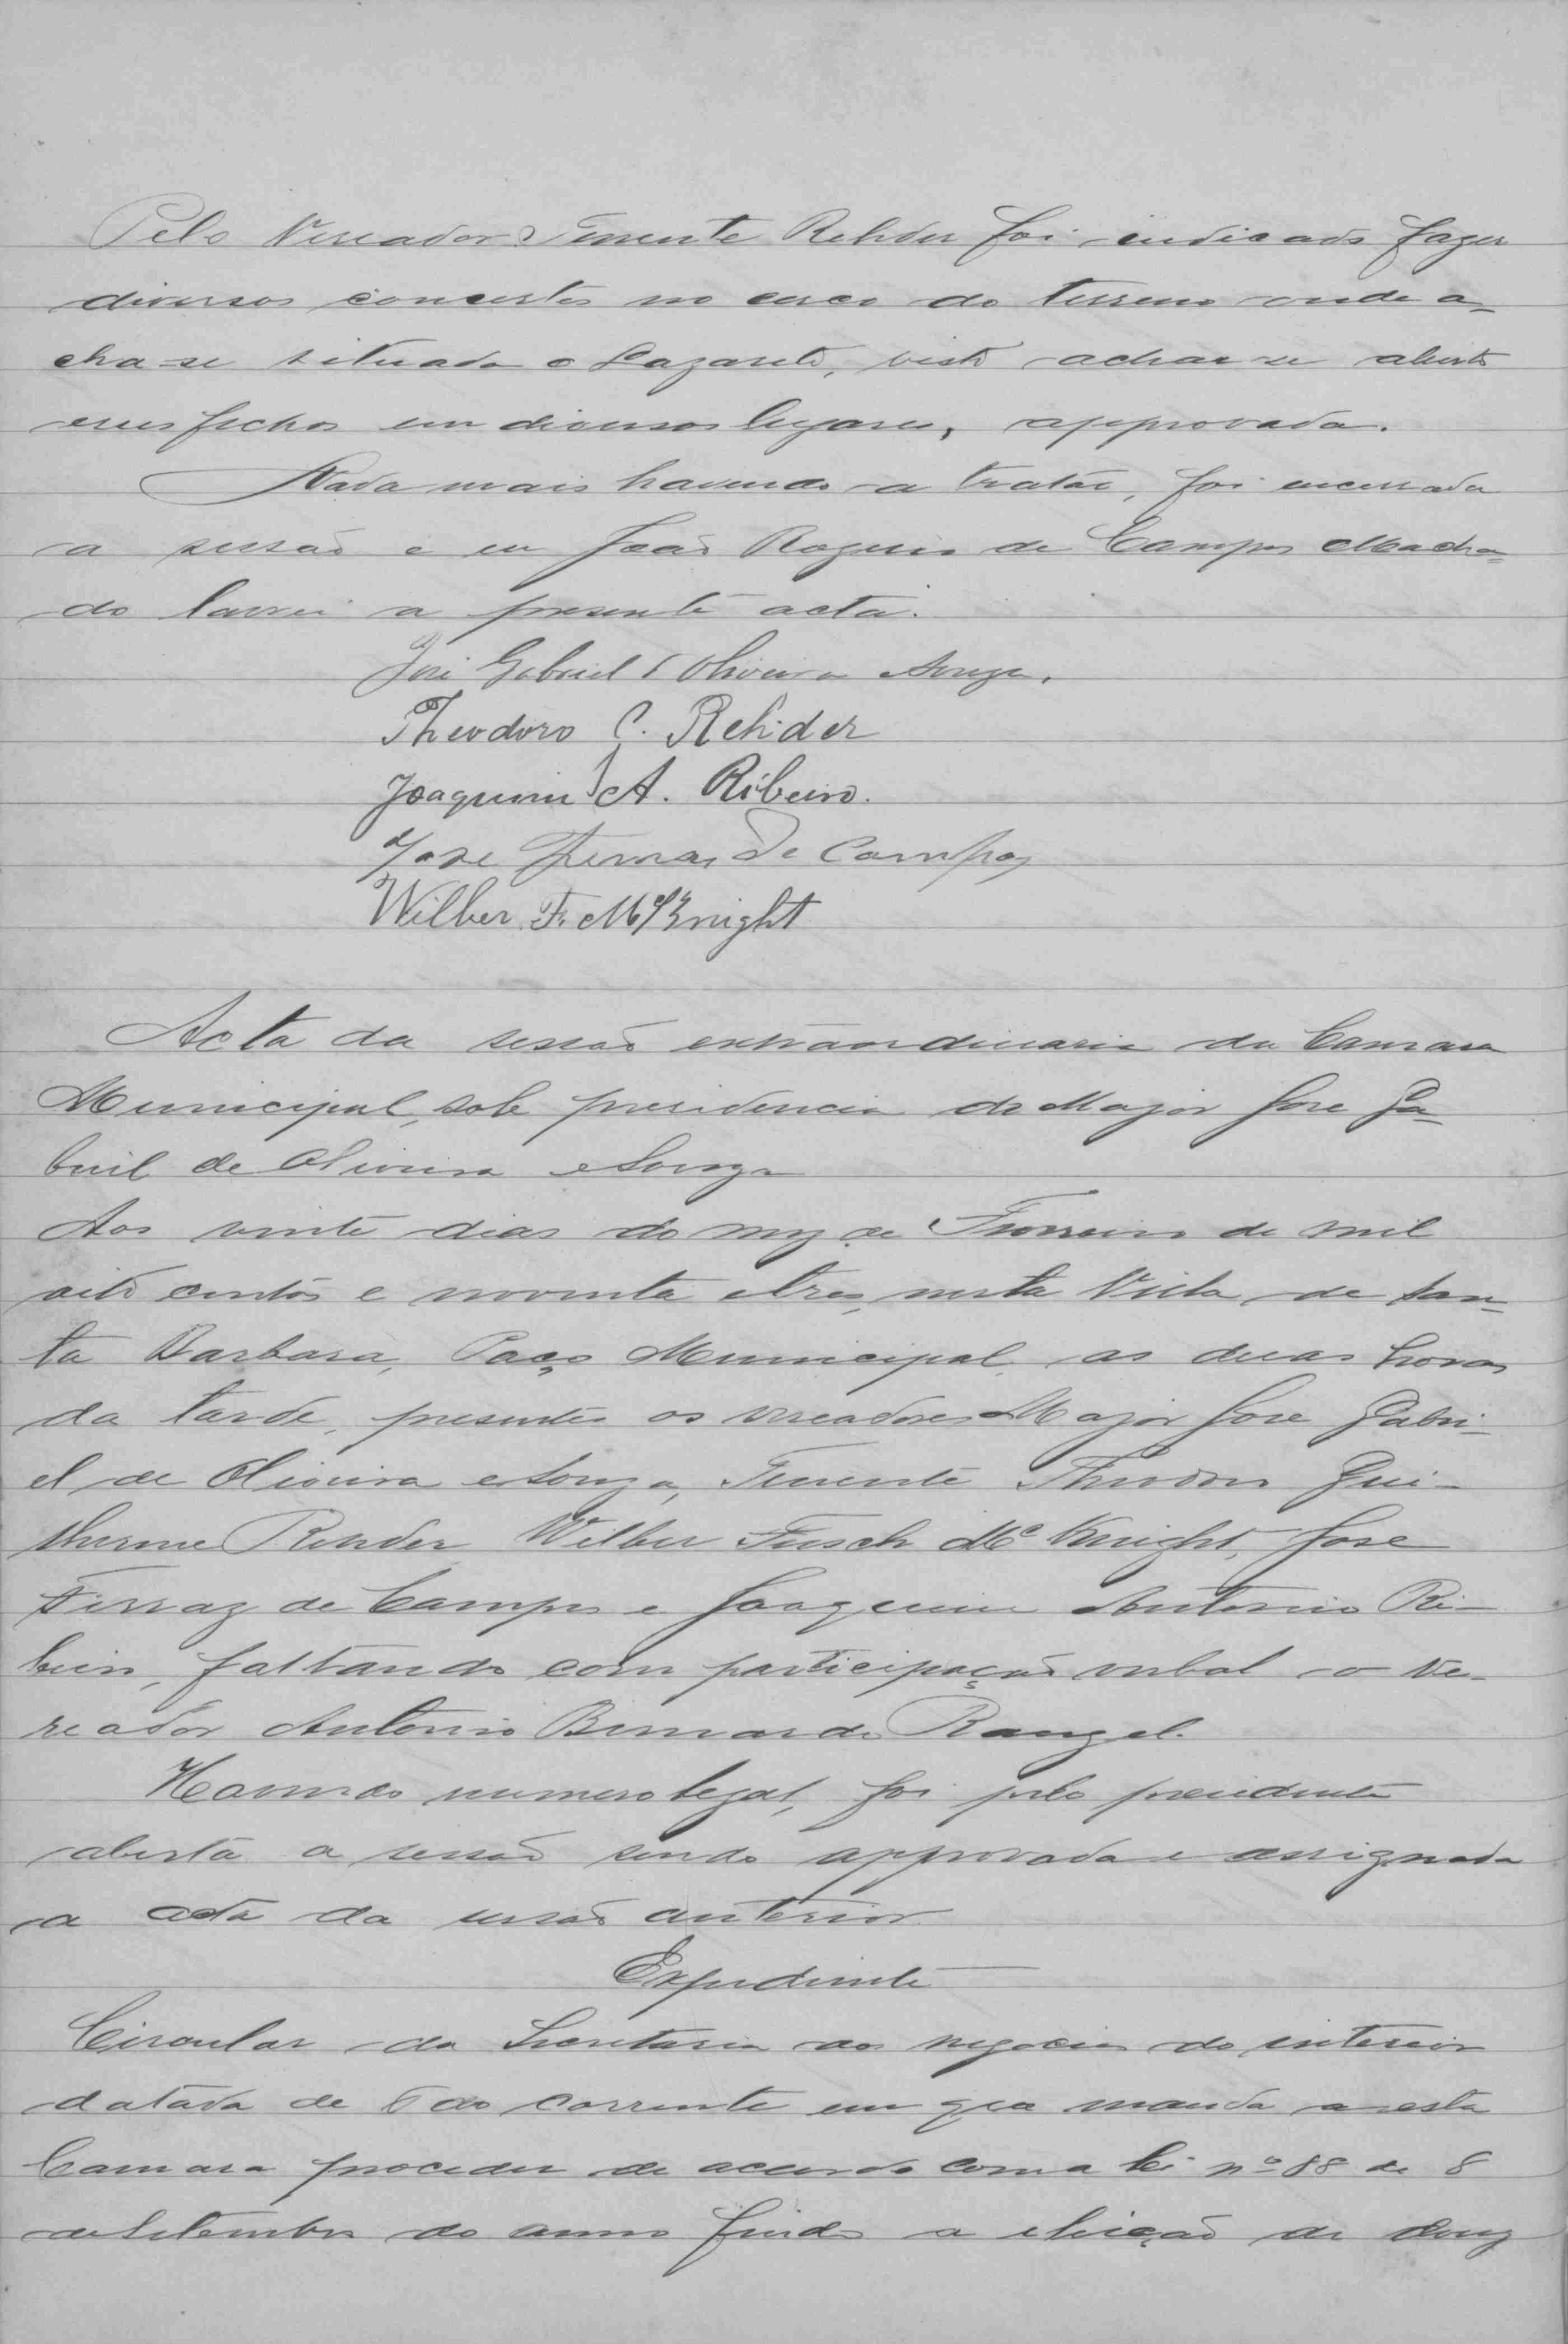 Pelo Vereador Tenente Rehder foi indicado fazer
diversos concertos no cerco do terreno onde a-
cha-se situado o Lazareto, visto achar-se aberto
seus fechos em diversos lugares, approvada.
Nada mais havendo a tratar, foi encerrada
a sessão e eu João Rogerio de Campos Macha-
do lavrei a presente acta.
José Gabriel d'Oliveira e Souza.
Theodoro C. Rehder
Joaquim A. Ribeiro.
Jose Ferraz de Campos
Wilber F. McKnight
Acta da sessão extraordinaria da Camara
Municipal, sob presidencia do Major Jose Ga-
briel de Oliveira e Souza
Aos vinte dias do mez de Fevereiro de mil
oito centos e noventa e tres, nesta Villa de San-
ta Barbara, Paço Municipal, as duas horas
da tarde, presentes os vereadores Major Jose Gabri-
el de Oliveira e Souza, Tenente Theodoro Gui-
lherme Rehder, Wilber McKnight, Jose
Ferraz de Campos e Joaquim Antonio Ri-
beiro, faltando com participação verbal o Ve-
reador Antonio Bernardo Rangel.
Havendo numero legal, foi pelo presidente
aberta a sessão sendo approvada e assignada
a acta da sessão anterior.
Expediente
Circular da Secretaria dos negocios do interior
datada de 6 do corrente em que manda a esta
Camara proceder de accordo com a lei nº 88 de 8
de Setembro do anno findo a eleição de douz